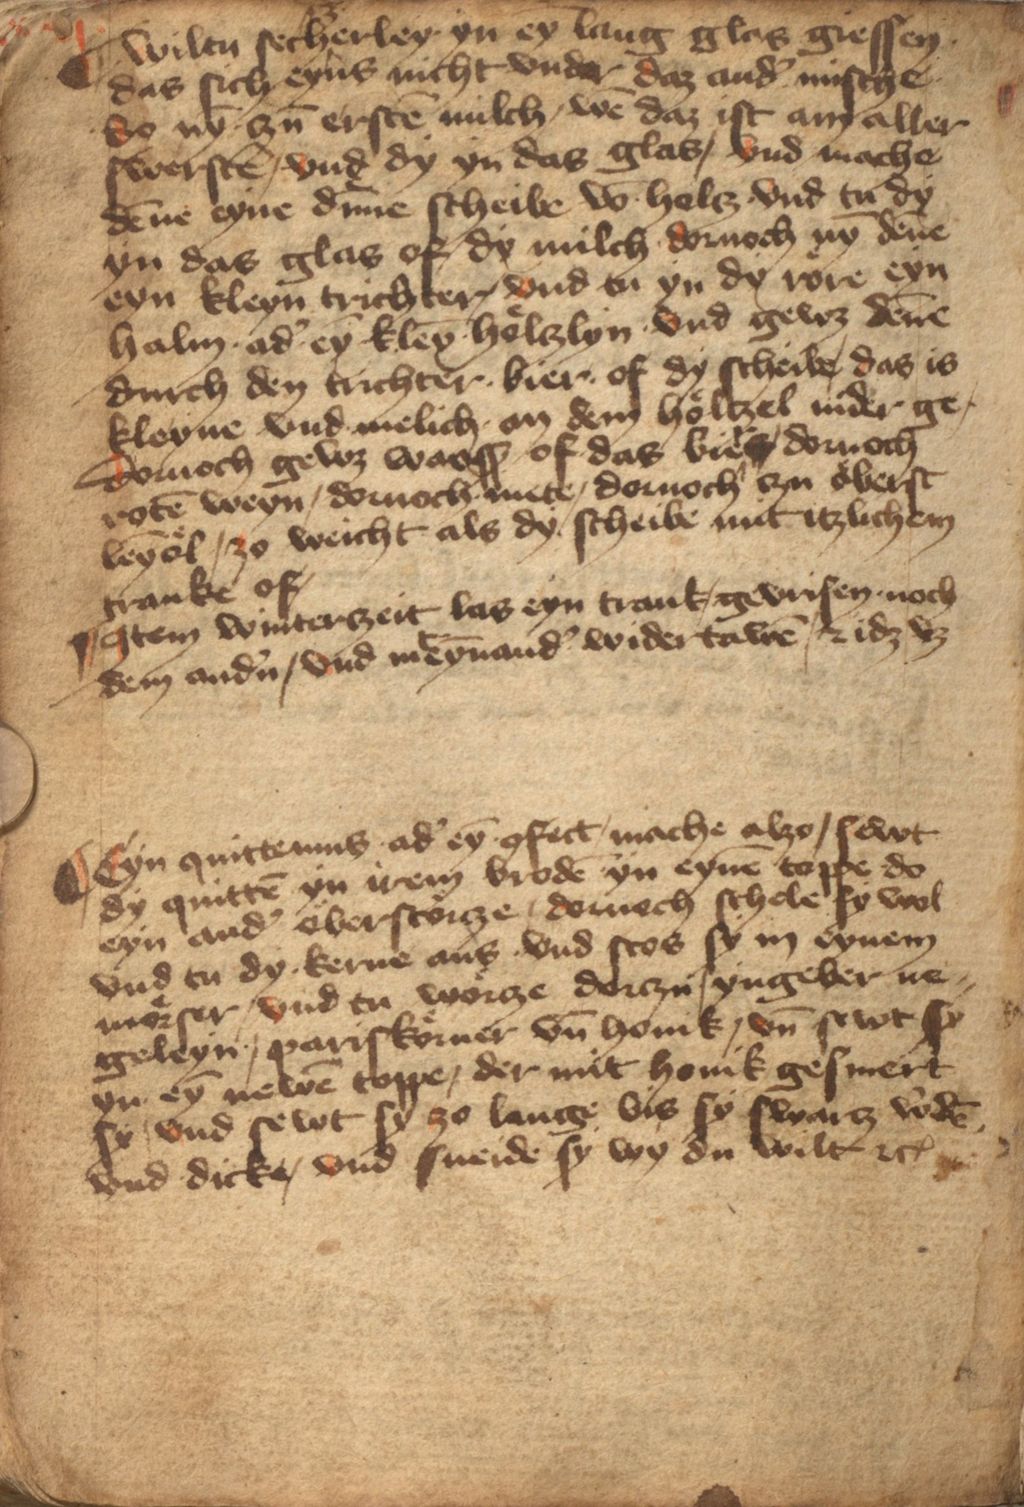 Wiltu secherley yn ey̅ lang glas giessen
das sich eyns nicht vnder daz and' mische
so ny̅ czu̅ erste̅ milch / we̅ daz ist am aller
swerste̅ / vnd dy yn das glas / vnd mache
de̅ne eyne du̅ne scheibe vo̅ holtz vnd tu dy
yn das glas of dy milch dornoch ny̅ de̅ne
eyn kleyn trichter / vnd tu yn dy röre eyn
halm ad' ey̅ kley̅ höltzlyn vnd gewz de̅ne
durch den trichter bier of dy scheibe / das is
kleyne vnd melich an dem höltzel nider ge
dornoch gewz wass' of das bier / dornoch
rote̅ weyn / dornoch mete / dornoch czu öberst
ley̅öl / zo weicht als dy scheibe mit itzlichem
tranke of /
Item winterszeit las eyn trank gevrisen noch
dem and'n / vnd eynand' wider
Eyn quittenmus ad' ey̅ ꝯfect mache alzo / sewt
dy quitte̅ yn irem brode̅ yn eyne̅ toppe do
eyn and' öberstörcze / dornoch schele sy wol
vnd tu dy kerne aus vnd stos sy in eynem
mörser / vnd tu wörcze dorczu / yngeber ne
geleyn / pariskörner vn̅ honik / vn̅ sewt sy
yn ey̅ newe̅ toppe / der mit honik gesmert
sy / vnd sewt sy zo lange bis sy swarcz w'de̅
vnd dicke / vnd sneide sy wy du wilt ꝛcꝭ